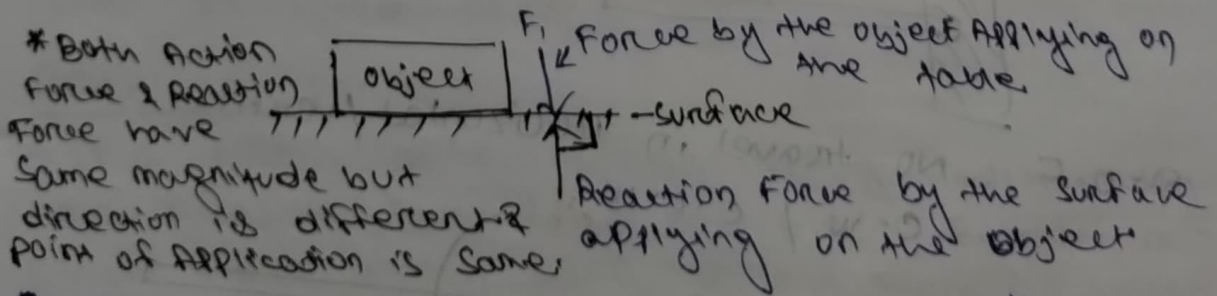 * Both Action
Force & Reaction
Force have
Same magnitude but
direction is different &
point of Application is same.
object
F₁
Force by the object Applying on
the table
-surface
Reaction Force by the surface
applying on the object